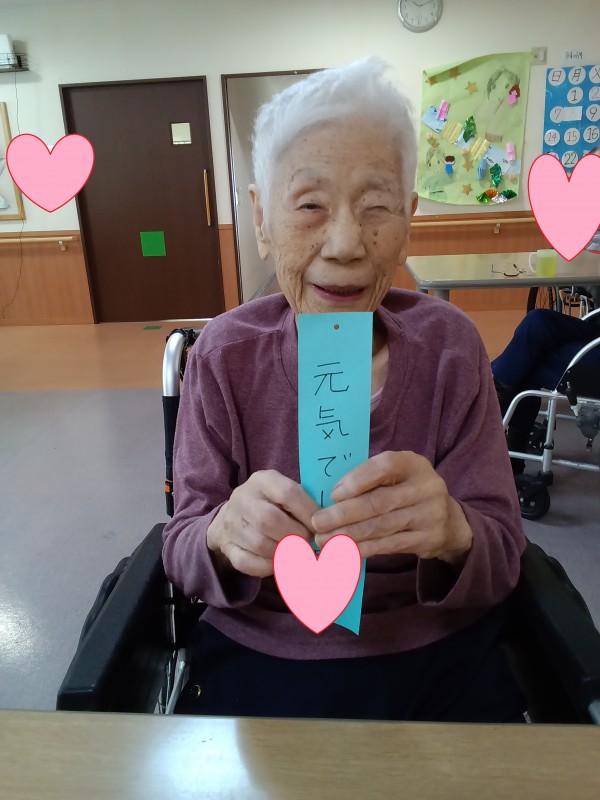 元気で
日 月 火
1
7 9
14 15 16
22